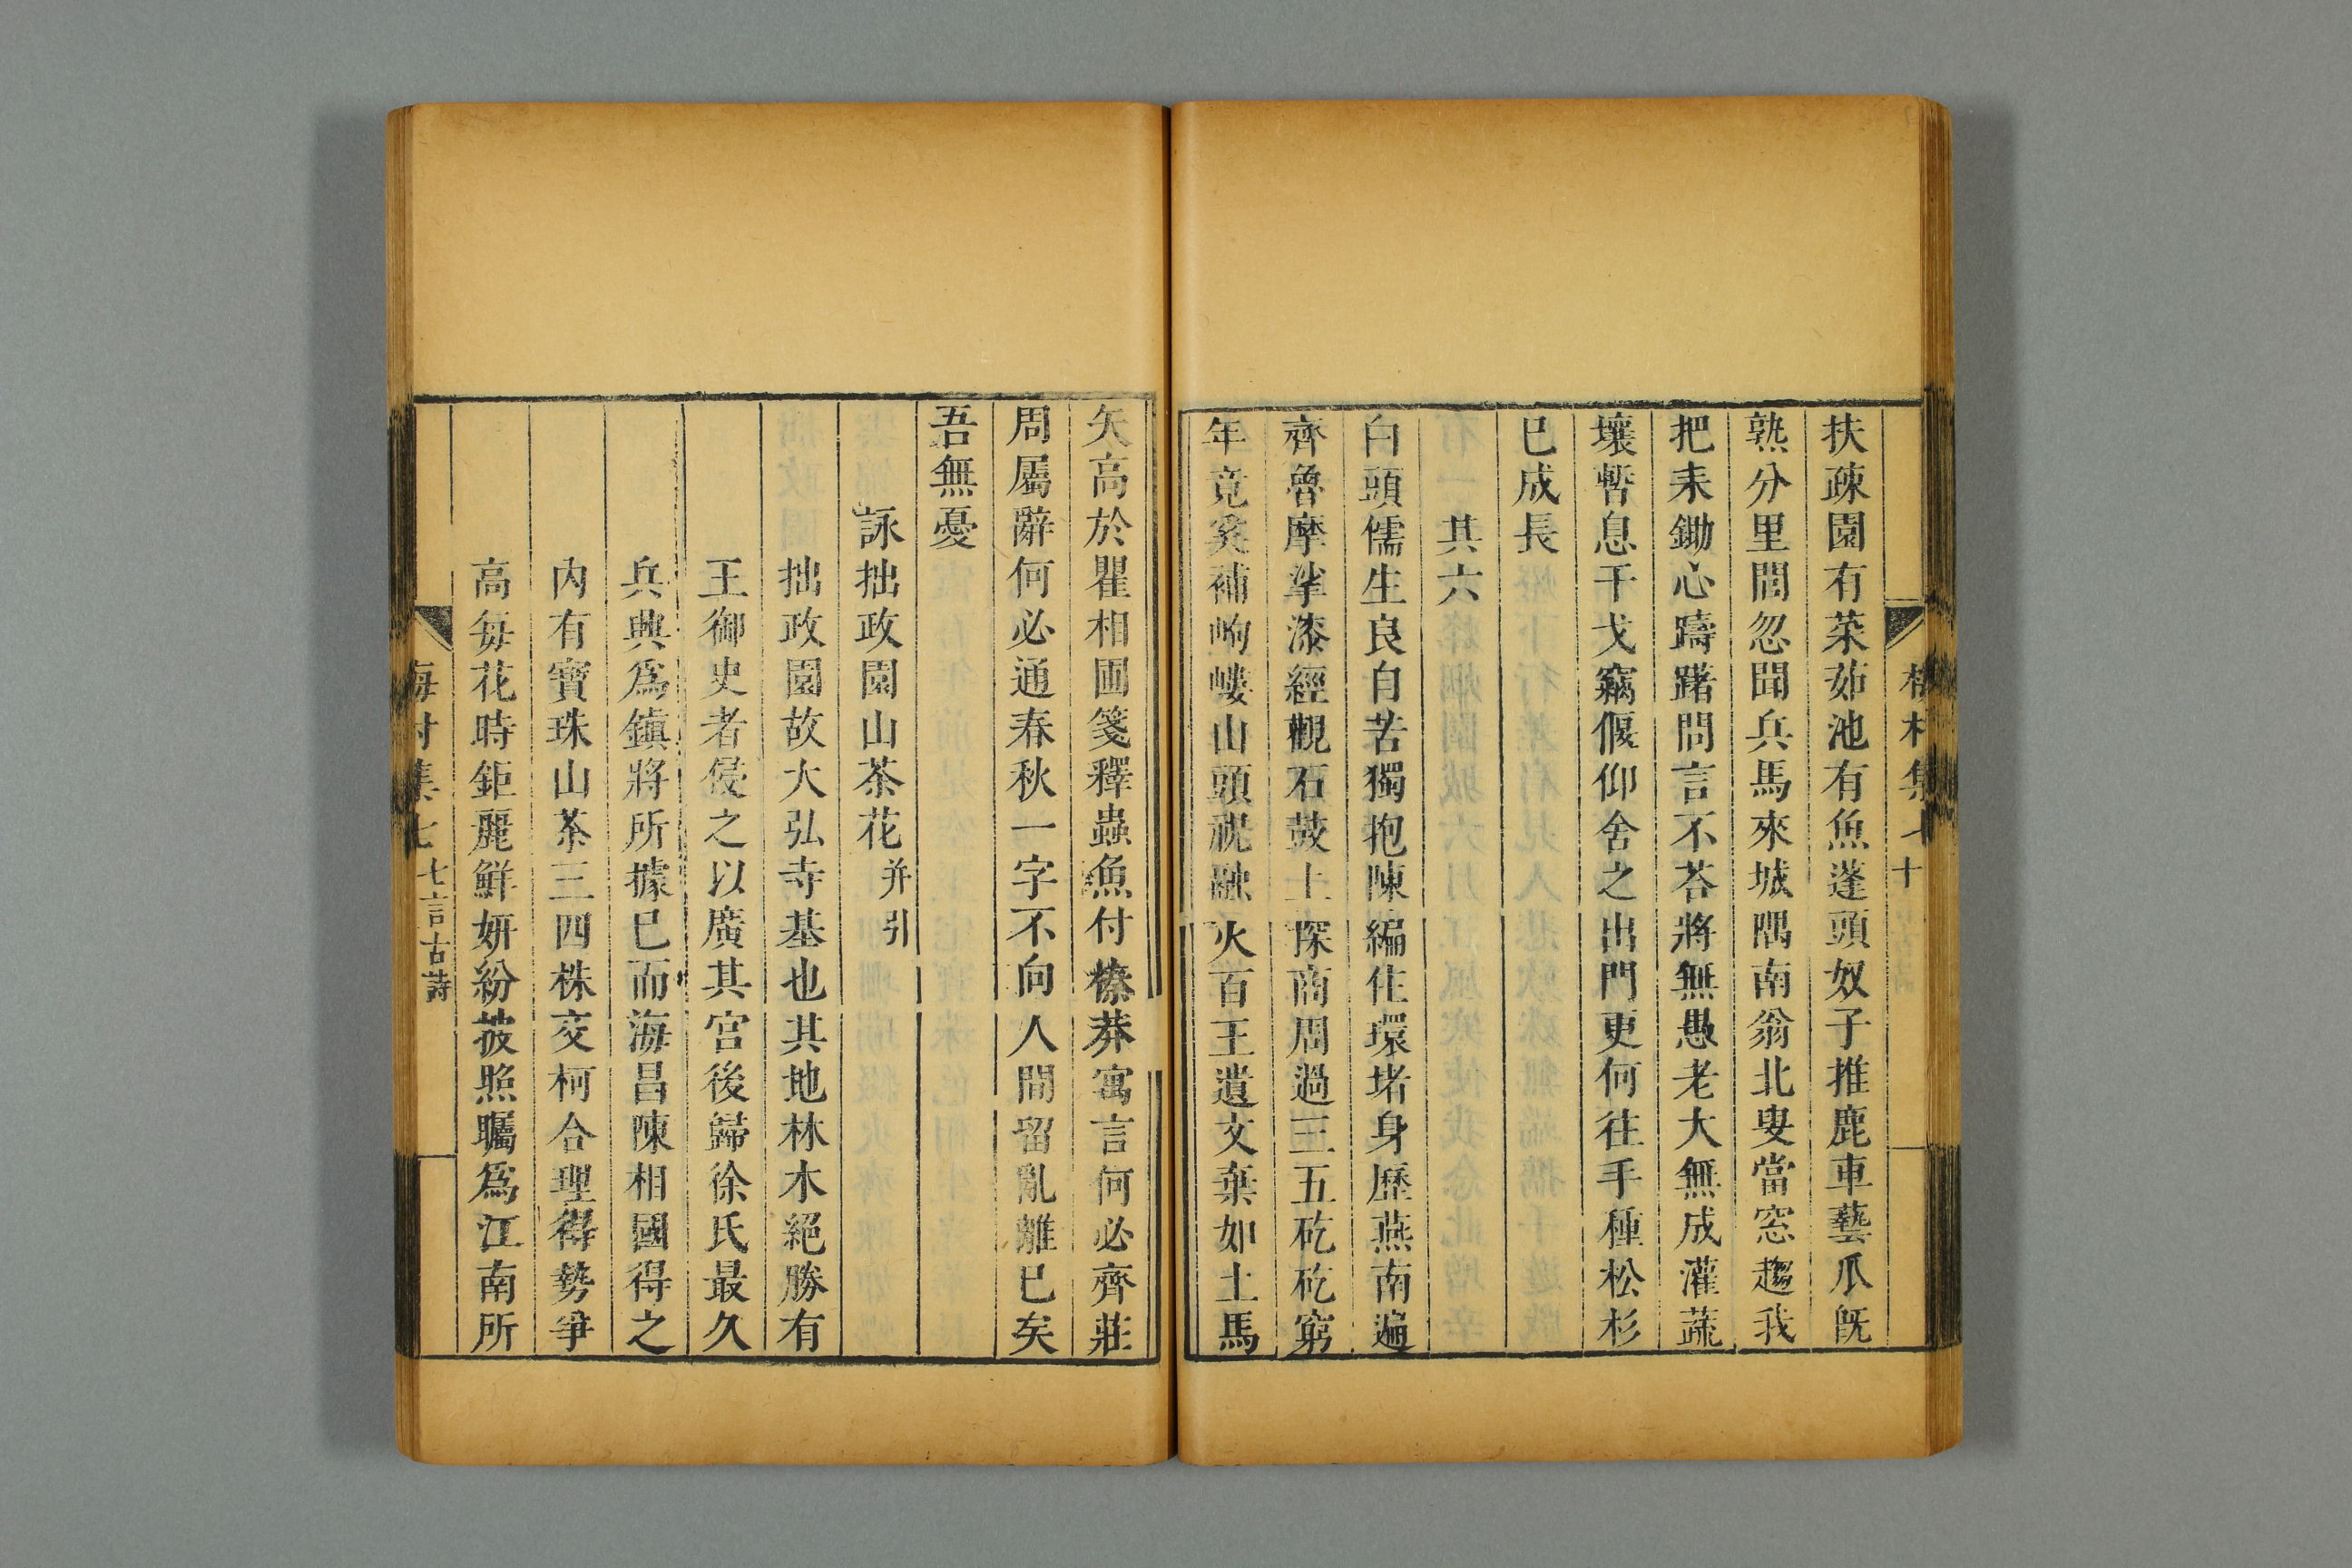 扶疎園有菜茹池有魚蓬頭奴子推鹿車藝瓜既
熟分里閭忽聞兵馬來城隅南翁北叟當窓趨我
把耒鋤心躊躇問言不荅將無愚老大無成灌蔬
壤暫息干戈竊偃仰舍之出門更何往手種松杉
已成長
其六
白頭儒生良自苦獨抱陳編住環堵身歷燕南遍
齊魯摩挲漆經觀石鼓上探商周過三五矻矻窮
年竟奚補岣嶁山頭祝融火百王遺文棄如土馬
矢高於瞿相圃箋釋蟲魚付榛莽寓言何必齊莊
周屬辭何必通春秋一字不向人間留亂離已矣
吾無憂
詠拙政園山茶花 并引
拙政園故大弘寺基也其地林木絕勝有
王御史者侵之以廣其宮後歸徐氏最久
兵興爲鎮將所據已而海昌陳相國得之
內有寶珠山茶三四株交柯合理得勢爭
高每花時鉅麗鮮妍紛披照矚爲江南所
梅村集 七 七言古詩